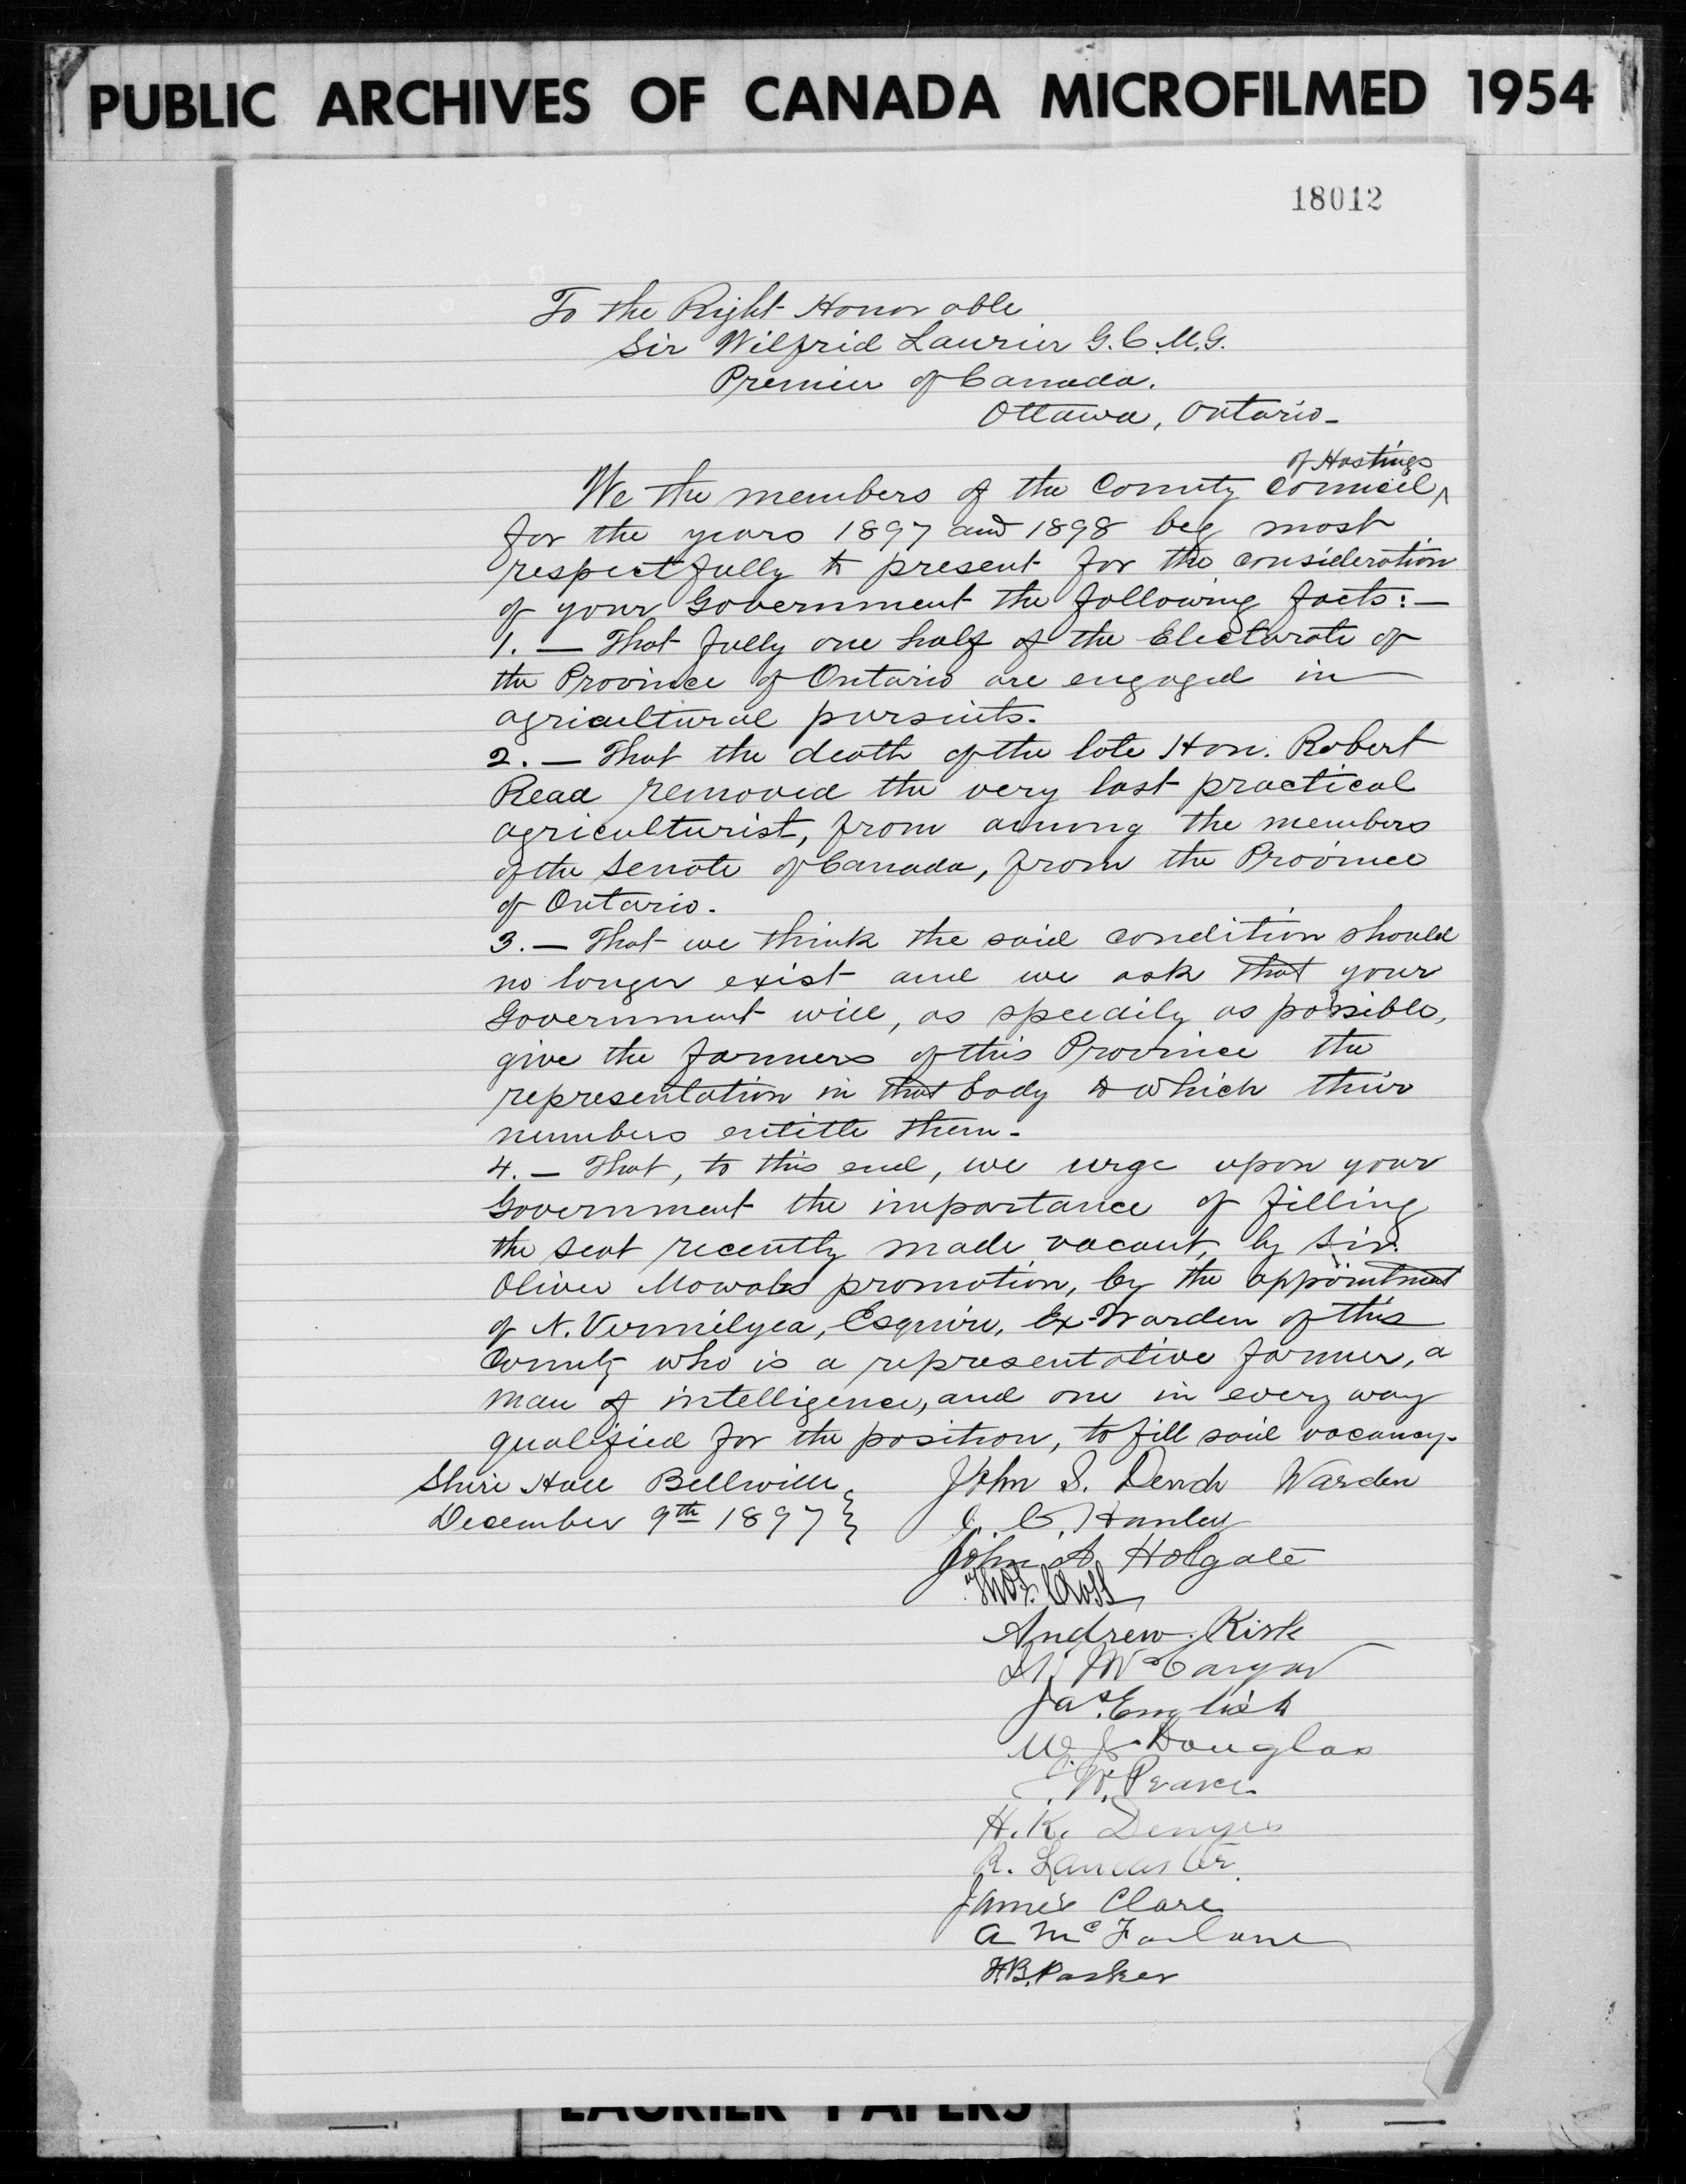 PUBLIC ARCHIVES OF CANADA MICROFILMED 1954
18012
To the Right Honorable
Sir Wilfrid Laurier G.C.M.G.
Premier of Canada.
Ottawa, Ontario-
of Hastings
We the members of the County Council ^
for the years 1897 and 1898 beg most
respectfully to present for the consideration
of your Government the following facts:—
1. — That fully one half of the Electorate of
the Province of Ontario are engaged in
agricultural pursuits.
2. — That the death of the late Hon. Robert
Read removed the very last practical
agriculturist, from among the members
of the Senate of Canada, from the Province
of Ontario.
3. — That we think the said condition should
no longer exist and we ask that your
Government will, as speedily as possible,
give the farmers of this Province the
representation in that body to which their
numbers entitle them.
4. — That, to this end, we urge upon your
Government the importance of filling
the seat recently made vacant, by Sir.
Oliver Mowats promotion, by the appointment
of N. Vermilyea, Esquire, Ex-Warden of this
County who is a representative farmer, a
man of intelligence, and one in every way
qualified for the position, to fill said vacancy.
Shire Hall Belleville
December 9th 1897
John S. Dench Warden
C. Hanley
John A Holgate
Thos. Cross
Andrew Kirk
Jas. English
W. J. Douglas
W. Pearce
H. K. Denyes
R. Lancaster.
James Clare
A McFarlane
H.B. Parker
LAURIER PAPERS